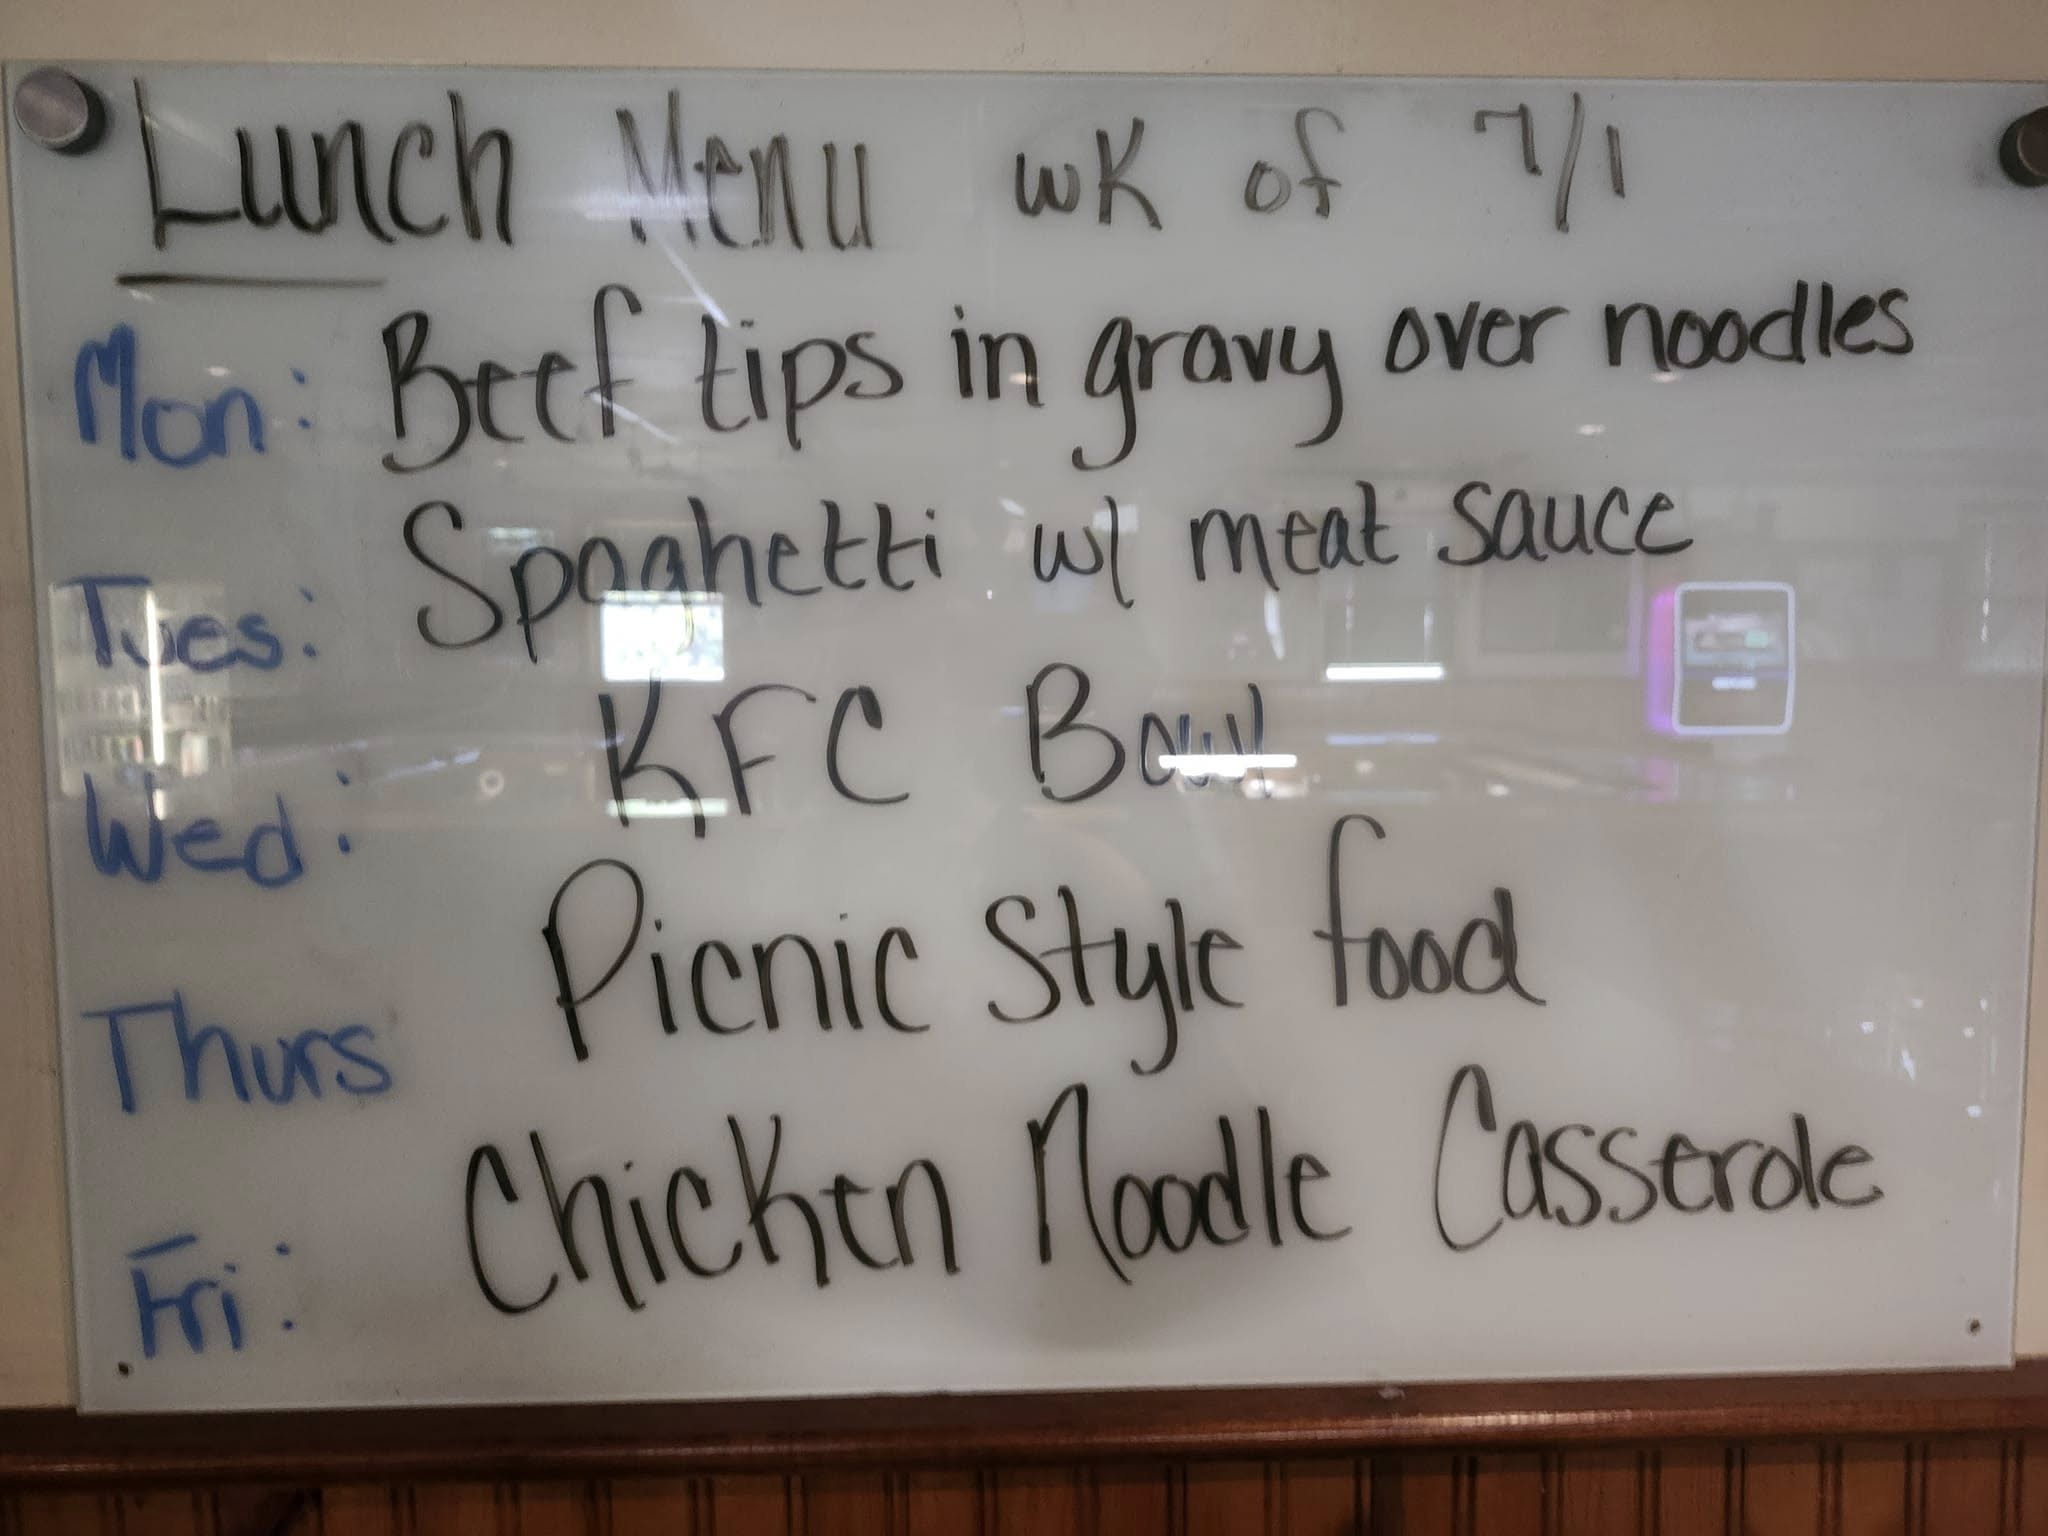 Lunch Menu wk of 7/1
Mon: Beef tips in gravy over noodles
Tues: Spaghetti w/ meat sauce
Wed: KFC Bowl
Thurs Picnic Style food
Fri: Chicken Noodle Casserole